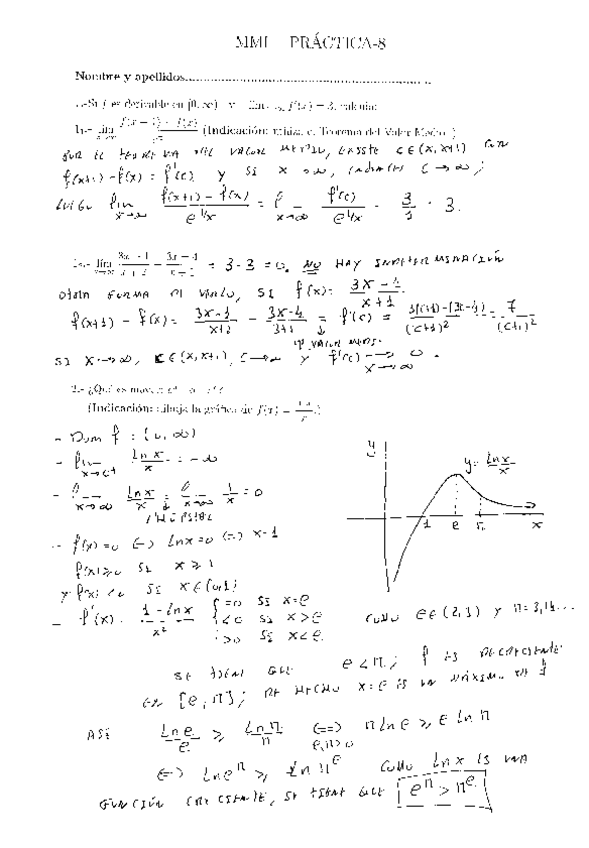 MMI PRÁCTICA-8
Nombre y apellidos
1.-Si f es derivable en [0, ∞) y f'(x) = 3, calcula:
lim f(x+1) - f(x) (Indicación: utiliza el Teorema del Valor Medio.)
POR EL TEOREMA DEL VALOR MEDIO, EXISTE c∈(x,x+1) CON
f(x+1)-f(x) = f'(c) Y SI x→∞, c→∞;
LUEGO lim x→∞ (f(x+1)-f(x))/e^(1/x) = lim x→∞ f'(c)/e^(1/x) = 3/1 = 3.
= 3-3 = 0. NO HAY INDETERMINACIÓN
OTRA FORMA DE VERLO, SI f(x) = (3x-4)/(x+1)
f(x+1) - f(x) = (3x-1)/(x+2) - (3x-4)/ = f'(c) = (3(c+1)-(3c-4))/(c+1)² = 7/(c+1)²
VALOR MEDIO
SI x→∞, c∈(x,x+1), c→∞ Y f'(c) → 0.
x→∞
2.- ¿Qué es mayor
(Indicación: dibuja la gráfica de f(x) = ln x / x.)
- Dom f = (0, ∞)
- lim x→0+ ln x / x = -∞
- lim x→∞ ln x / x = lim x→∞ 1/x = 0
L'HÔPITAL
y
y = ln x / x
1 e π x
- f(x)=0 ⇔ ln x=0 ⇔ x=1
f(x)≥0 SI x≥1
y f(x)<0 SI x∈(0,1)
- f'(x) = (1 - ln x)/x² { =0 SI x=e
<0 SI x>e
>0 SI x<e
COMO e∈(2,3) Y π=3,14...
SE TIENE QUE e<π; f ES DECRECIENTE
EN [e,π]; DE HECHO x=e ES UN MÁXIMO DE f
ASÍ ln e / e ≥ ln π / π ⇔ π ln e ≥ e ln π
e,π>0
⇔ ln e^π ≥ ln π^e COMO ln x ES UNA
FUNCIÓN CRECIENTE, SE TIENE QUE e^π > π^e